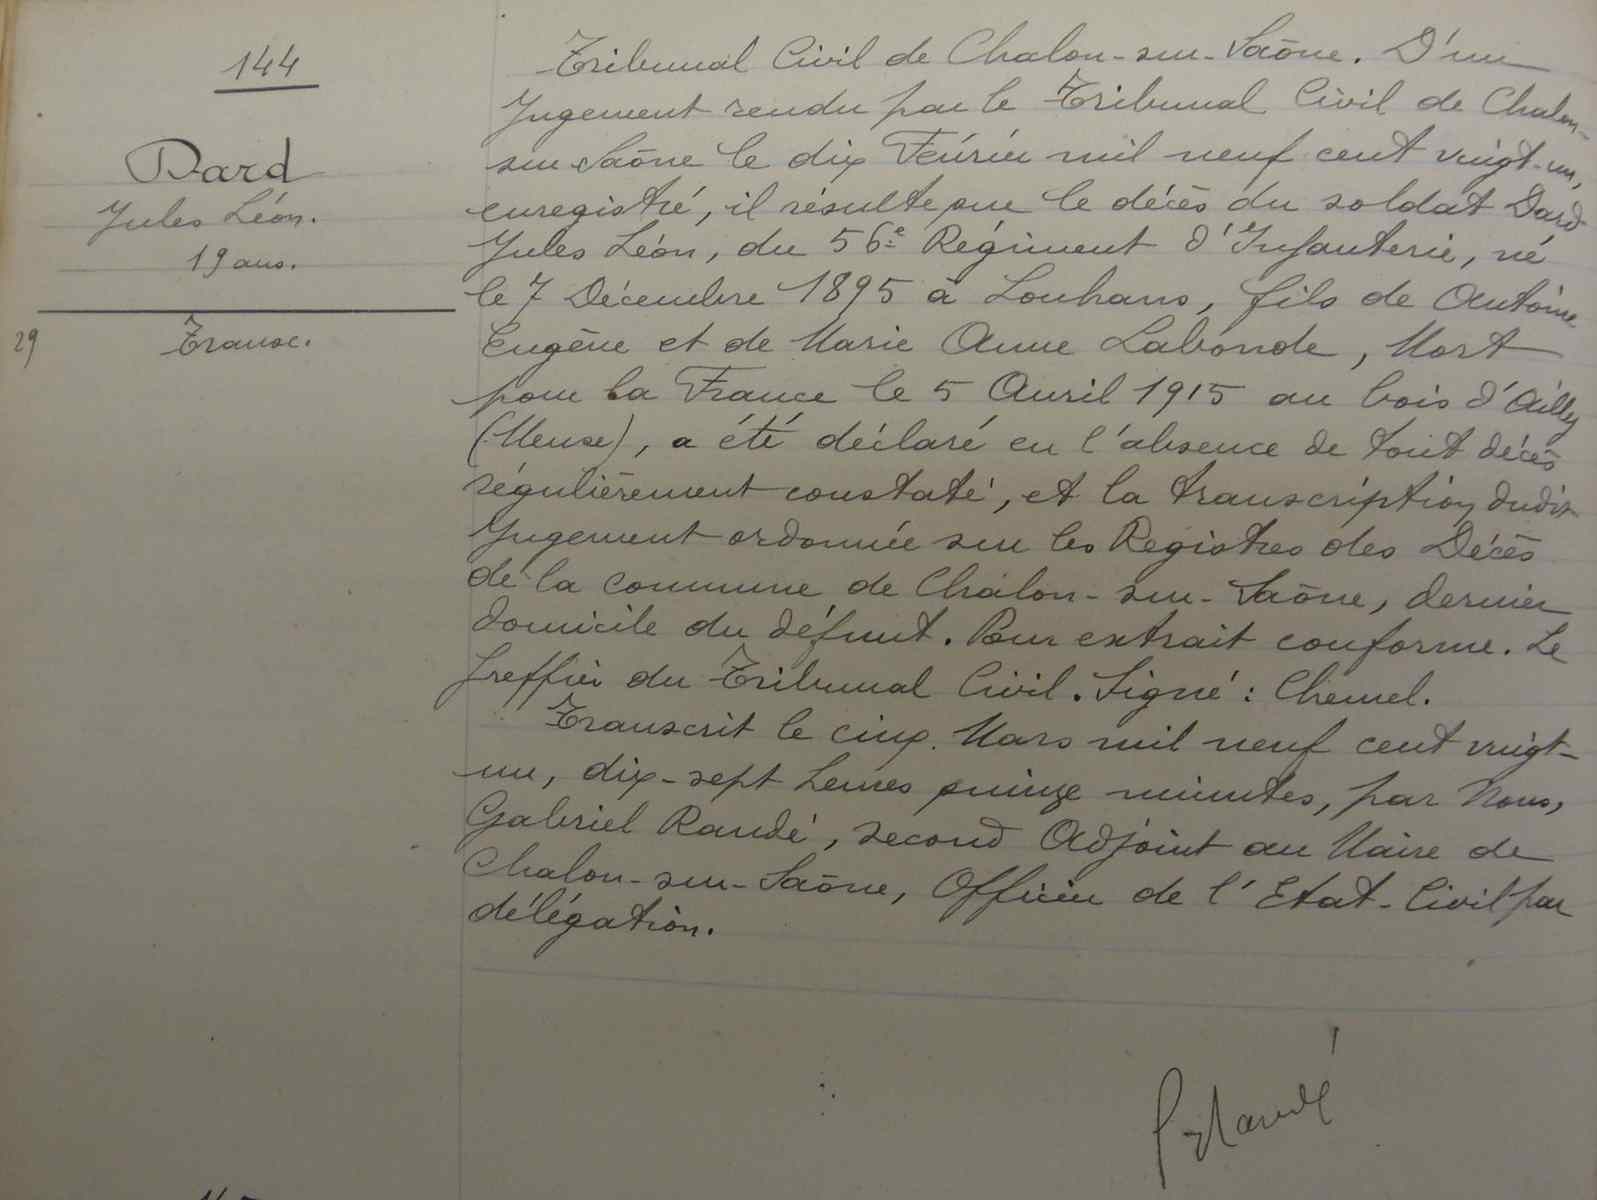 144
Dard
Jules Léon.
19 ans.
29
Transc.
Tribunal Civil de Chalon-sur-Saône. D'un
Jugement rendu par le Tribunal Civil de Chalon-
sur Saône le dix Février mil neuf cent vingt-un,
enregistré, il résulte que le décès du soldat Dard
Jules Léon, du 56e Régiment d'Infanterie, né
le 7 Décembre 1895 à Louhans, fils de Antoine
Eugène et de Marie Anne Labonde, Mort
pour la France le 5 Avril 1915 au bois d'Ailly
(Meuse), a été déclaré en l'absence de tout décès
régulièrement constaté, et la transcription dudit
Jugement ordonnée sur les Registres des Décès
de la commune de Chalon-sur-Saône, dernier
domicile du défunt. Pour extrait conforme. Le
Greffier du Tribunal Civil. Signé: Chemel.
Transcrit le cinq Mars mil neuf cent vingt-
un, dix-sept heures quinze minutes, par Nous,
Gabriel Randé, second Adjoint au Maire de
Chalon-sur-Saône, Officier de l'Etat-Civil par
délégation.
GRandé